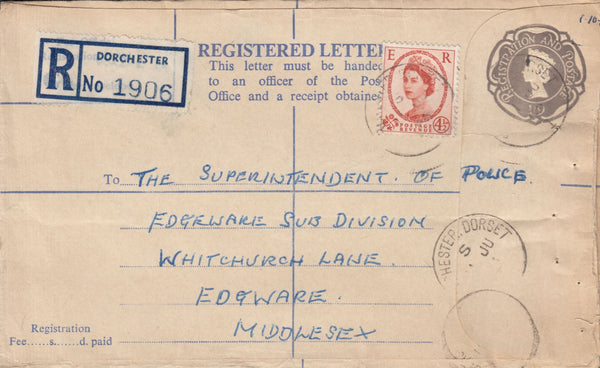 DORCHESTER
R No 1906
REGISTERED LETTER
This letter must be handed
to an officer of the Pos
Office and a receipt obtained
E R
POSTAGE
REVENUE
4½D
REGISTRATION AND POSTAGE
1/9
To THE SUPERINTENDENT. OF POLICE.
EDGEWARE SUB DIVISION
WHITCHURCH LANE.
EDGWARE.
MIDDLESEX
CHESTER. DORSET
5 JU
Registration
Fee......s.......d. paid